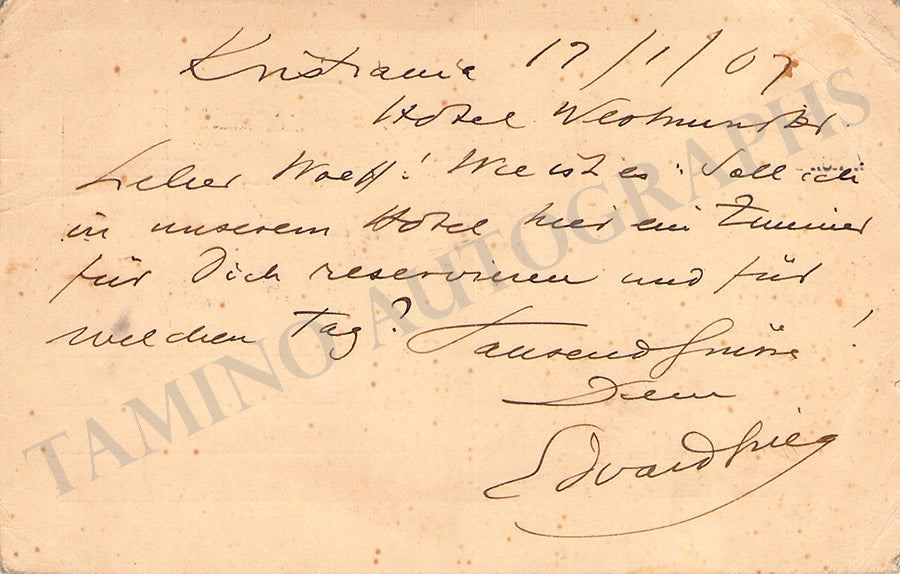 Kristiania 17/1/07
Hotel Westminster
Lieber Wolff! Wie ist es: Soll ich
in unserem Hotel hier ein Zimmer
für Dich reservieren und für
welchen Tag? Tausend Grüsse!
Dein
Edvard Grieg
TAMINO AUTOGRAPHS